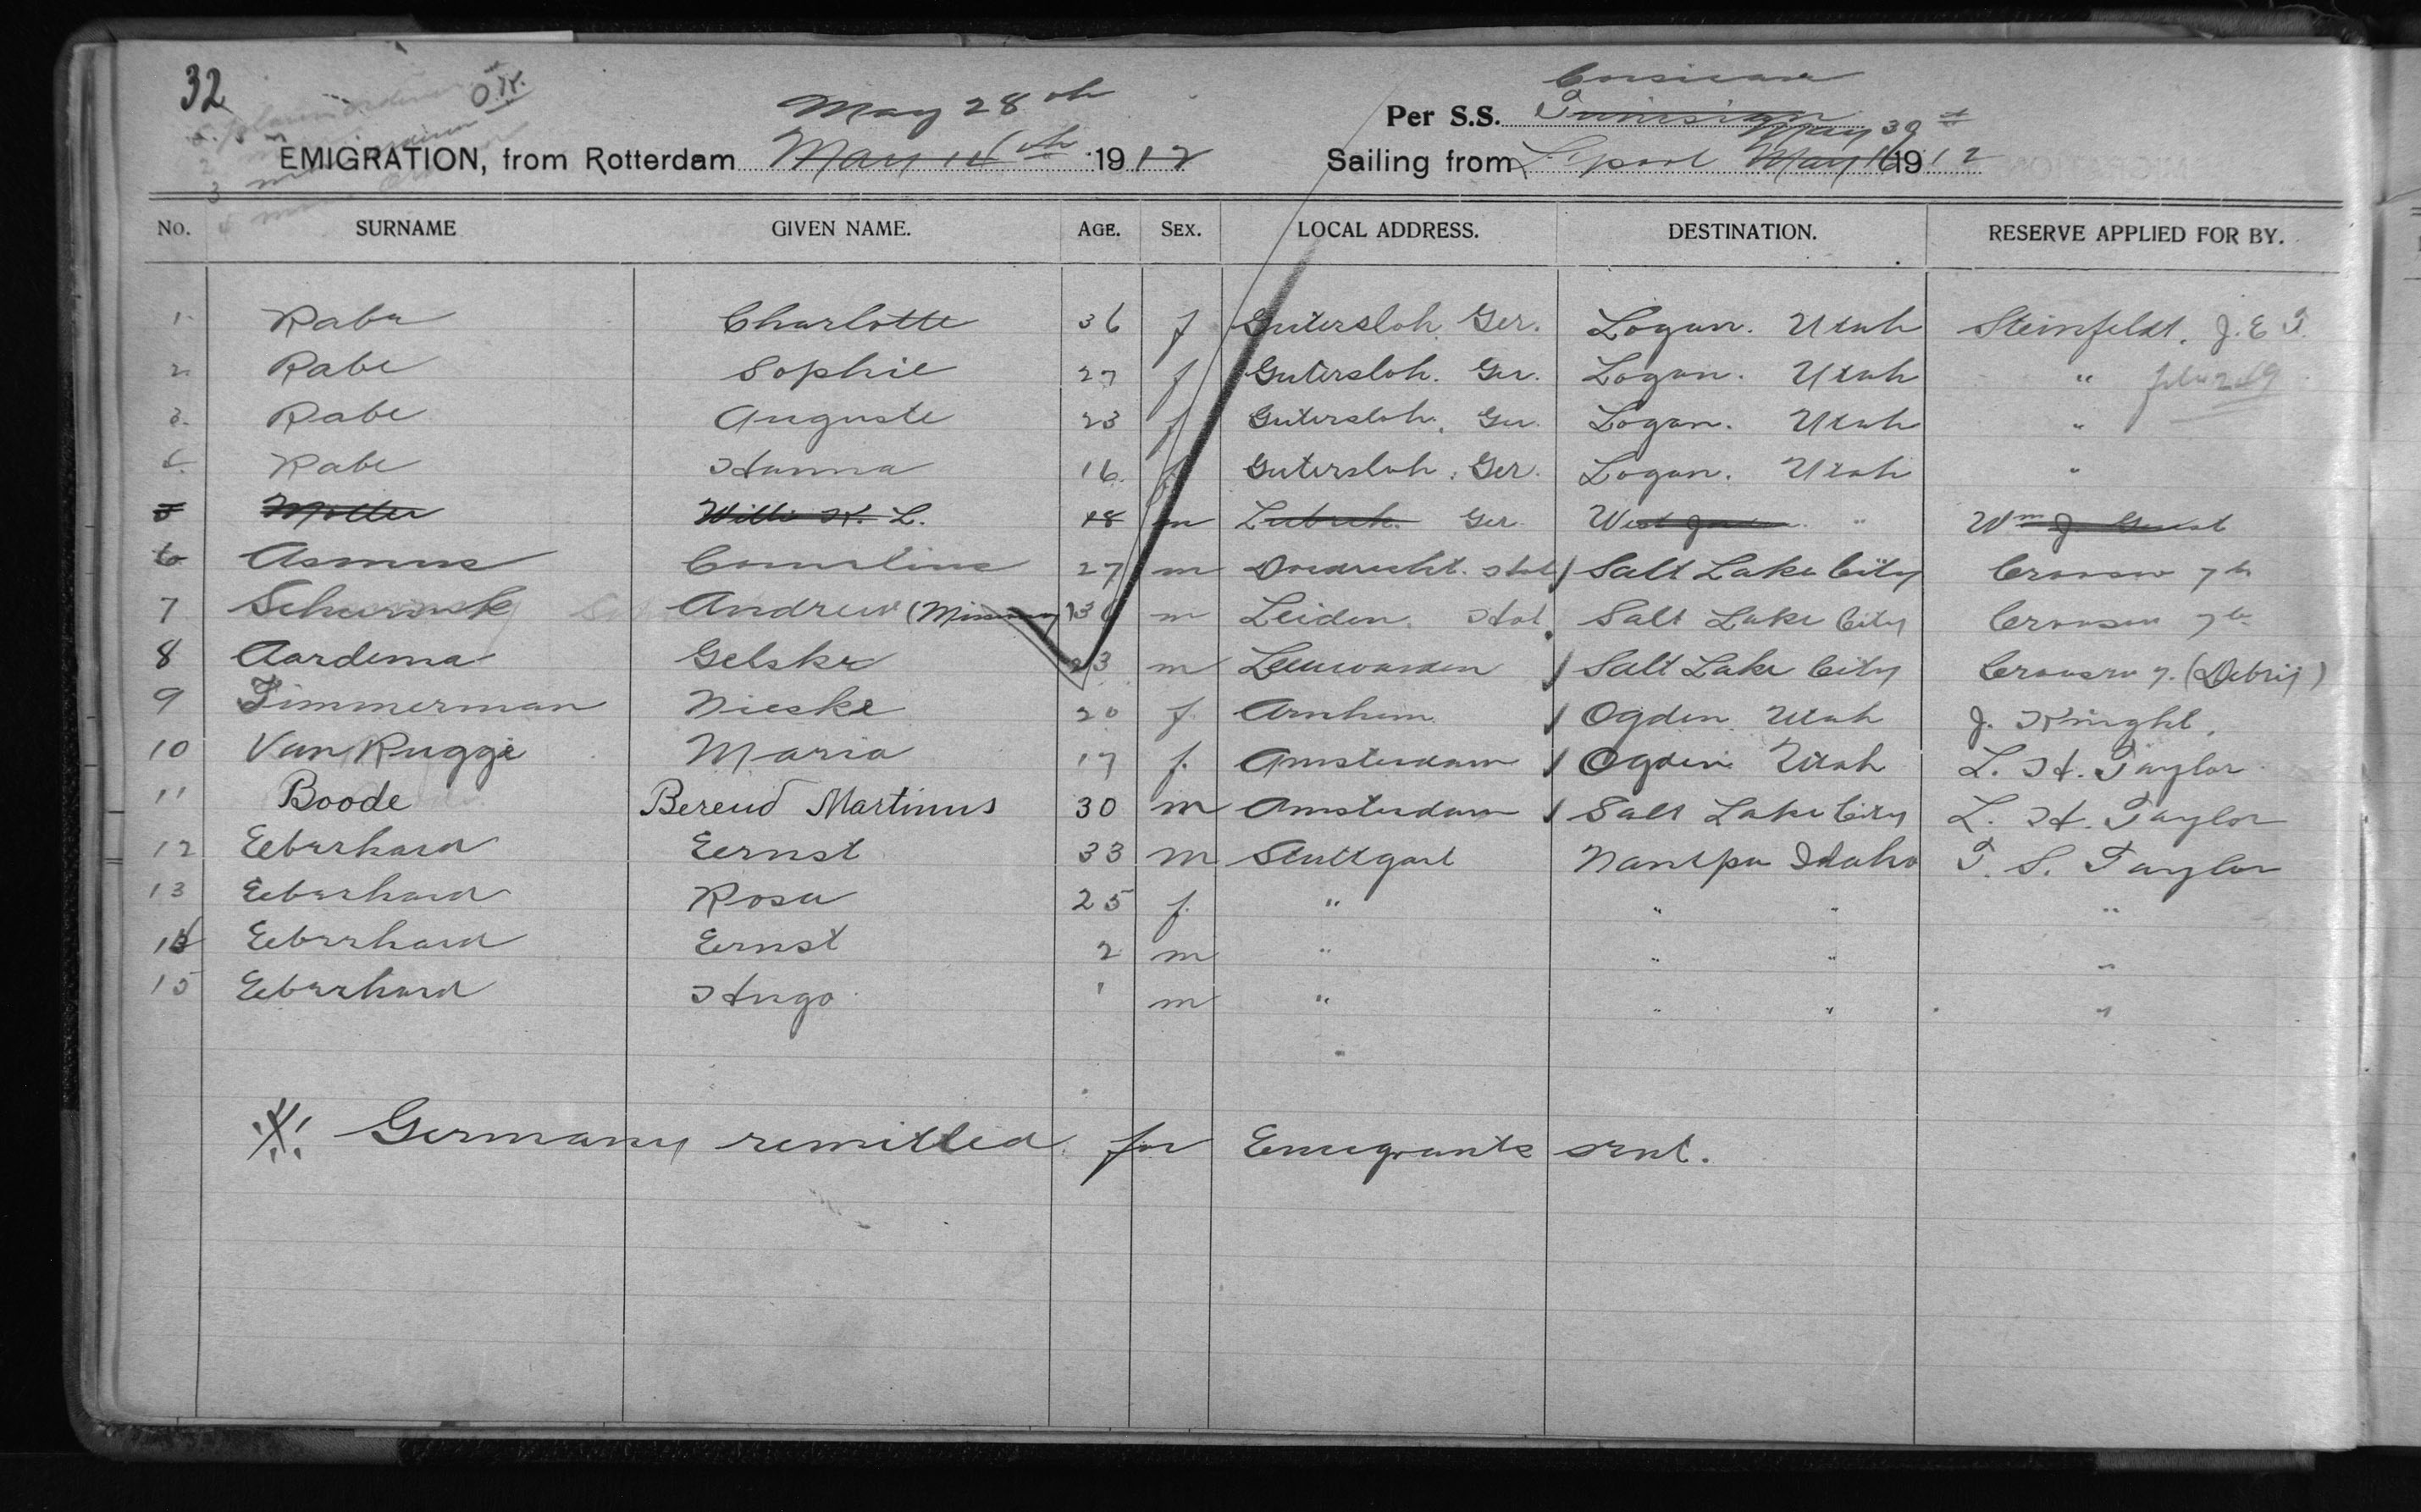 32
O.K.
May 28th
Corsican
EMIGRATION, from Rotterdam May 14th 1912
Per S.S. Tunisian
May 30th
Sailing from L'pool May 16 1912
No. SURNAME GIVEN NAME. AGE. SEX. LOCAL ADDRESS. DESTINATION. RESERVE APPLIED FOR BY.
1. Rabe Charlotte 36 f Gutersloh Ger. Logan. Utah Steinfeldt, J. E. T.
2. Rabe Sophie 27 f Gutersloh. Ger. Logan. Utah "
3. Rabe Auguste 23 f Gutersloh. Ger. Logan. Utah "
4. Rabe Hanna 16. f Gutersloh. Ger. Logan. Utah "
5 Willi K. L. 18 m Lubeck. Ger. West " Wm J.
6 Asmus 27 m Dordrecht. Hol. Salt Lake City 7th
7 Andrew m Leiden. Hol. Salt Lake City 7th
8 Aardema Gelske 23 m Leeuwarden Salt Lake City
9 Timmerman Nieske 20 f. Arnhem Ogden Utah J. Knight.
10 Van Rugge Maria 17 f. Amsterdam Ogden Utah L. H. Taylor
11 Boode Berend Martinus 30 m Amsterdam Salt Lake City L. H. Taylor
12 Eeberhard Eernst 33 m Stuttgart Nampa Idaho T. S. Taylor
13 Eeberhard Rosa 25 f. " " " "
14 Eeberhard Eernst 2 m " " " "
15 Eeberhard Hugo 1 m " " " "
Germany remitted for Emigrants sent.